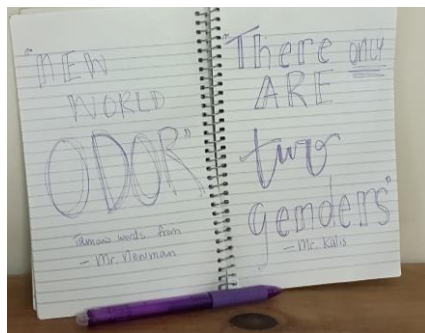 "NEW
WORLD
ODOR"
famous words from
- Mr. Newman
"There only
ARE
two
genders"
- Mr. Kalis